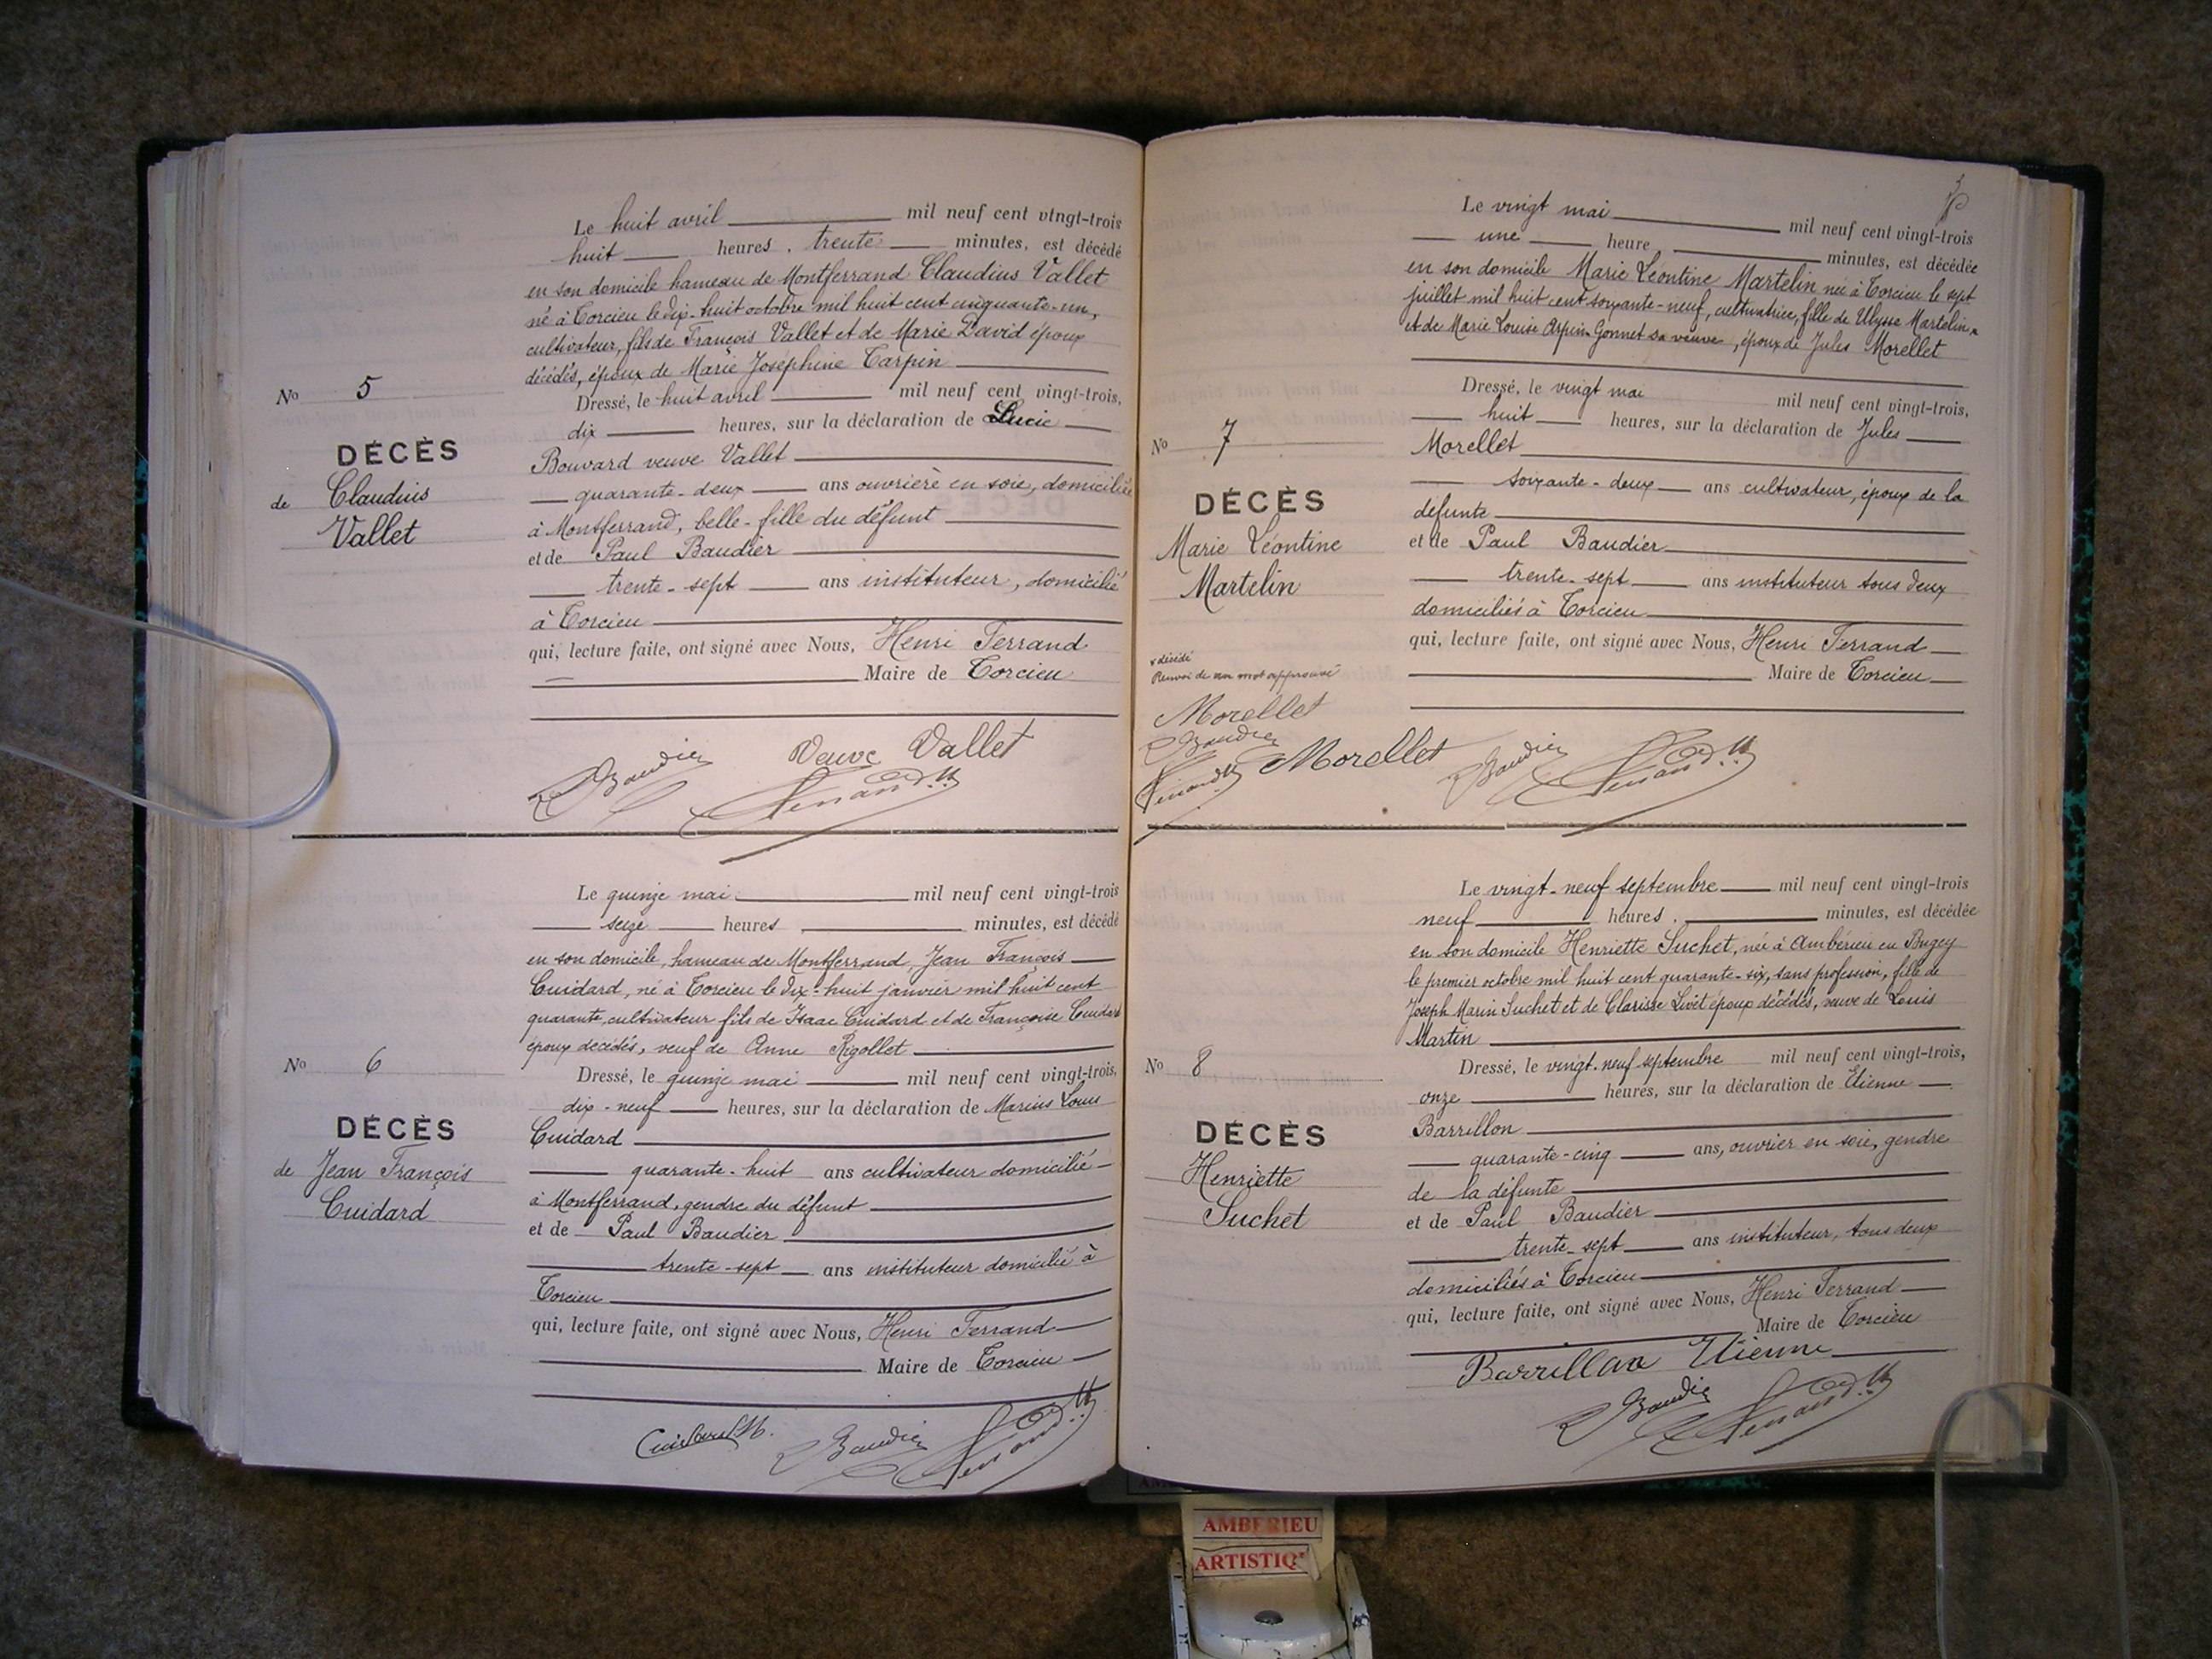 Le huit avril mil neuf cent vingt-trois
huit heures, trente minutes, est décédé
en son domicile hameau de Montferrand Claudius Vallet
né à Torcieu le dix-huit octobre mil huit cent cinquante-un,
cultivateur, fils de François Vallet et de Marie David époux
décédés, époux de Marie Joséphine Carpin
No 5
Dressé, le huit avril mil neuf cent vingt-trois,
dix heures, sur la déclaration de Lucie
DÉCÈS
Bouvard veuve Vallet
de Claudius
quarante-deux ans ouvrière en soie, domiciliée
Vallet
à Montferrand, belle-fille du défunt
et de Paul Baudier
trente-sept ans instituteur, domicilié
à Torcieu
qui, lecture faite, ont signé avec Nous, Henri Ferrand
Maire de Torcieu
Veuve Vallet
Baudier
Ferrand H
Le quinze mai mil neuf cent vingt-trois
seize heures minutes, est décédé
en son domicile, hameau de Montferrand, Jean François
Cuidard, né à Torcieu le dix-huit janvier mil huit cent
quarante, cultivateur fils de Isaac Cuidard et de Françoise Cuidard
époux décédés, veuf de Anne Rigollet
No 6
Dressé, le quinze mai mil neuf cent vingt-trois,
dix-neuf heures, sur la déclaration de Marius Louis
DÉCÈS
Cuidard
de Jean François
quarante-huit ans cultivateur domicilié
Cuidard
à Montferrand, gendre du défunt
et de Paul Baudier
trente-sept ans instituteur domicilié à
Torcieu
qui, lecture faite, ont signé avec Nous, Henri Ferrand
Maire de Torcieu
Cuidard M.
Baudier
Ferrand H
Le vingt mai mil neuf cent vingt-trois
une heure minutes, est décédée
en son domicile Marie Léontine Martelin née à Torcieu le sept
juillet mil huit cent soixante-neuf, cultivatrice, fille de Ulysse Martelin x
et de Marie Louise Arpin-Gonnet sa veuve, épouse de Jules Morellet
Dressé, le vingt mai mil neuf cent vingt-trois,
huit heures, sur la déclaration de Jules
No 7
Morellet
soixante-deux ans cultivateur, époux de la
DÉCÈS
défunte
Marie Léontine
et de Paul Baudier
Martelin
trente-sept ans instituteur tous deux
domiciliés à Torcieu
qui, lecture faite, ont signé avec Nous, Henri Ferrand
x décédé
Renvoi de un mot approuvé
Maire de Torcieu
Morellet
Baudier
Ferrand H
Morellet
Baudier
Ferrand H
Le vingt-neuf septembre mil neuf cent vingt-trois
neuf heures, minutes, est décédée
en son domicile Henriette Suchet, née à Ambérieu en Bugey
le premier octobre mil huit cent quarante-six, sans profession, fille de
Joseph Marin Suchet et de Clarisse Livet époux décédés, veuve de Louis
Martin
No 8
Dressé, le vingt-neuf septembre mil neuf cent vingt-trois,
onze heures, sur la déclaration de Etienne
DÉCÈS
Barrillon
Henriette
quarante-cinq ans, ouvrier en soie, gendre
Suchet
de la défunte
et de Paul Baudier
trente-sept ans instituteur, tous deux
domiciliés à Torcieu
qui, lecture faite, ont signé avec Nous, Henri Ferrand
Maire de Torcieu
Barrillon Etienne
Baudier
Ferrand H
AMBERIEU
ARTISTIQ